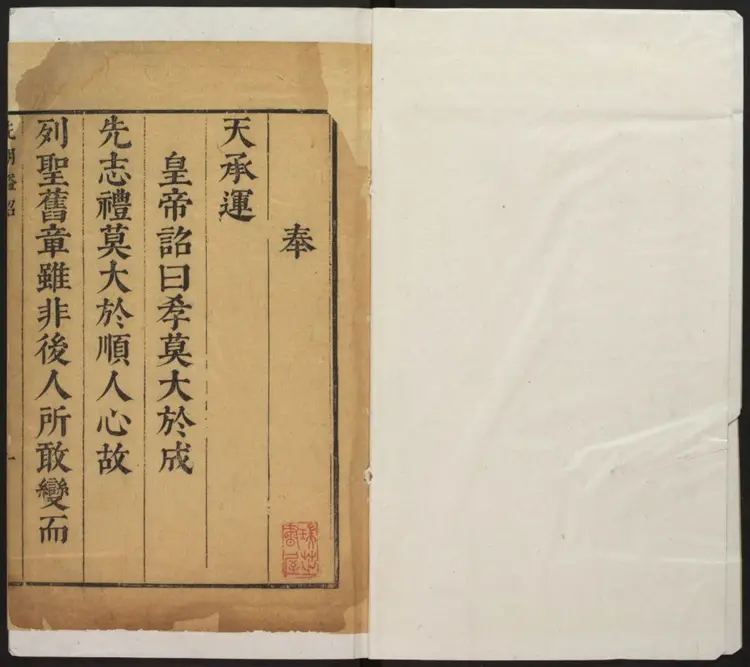 奉
天承運
皇帝詔曰孝莫大於成
先志禮莫大於順人心故
列聖舊章雖非後人所敢變而